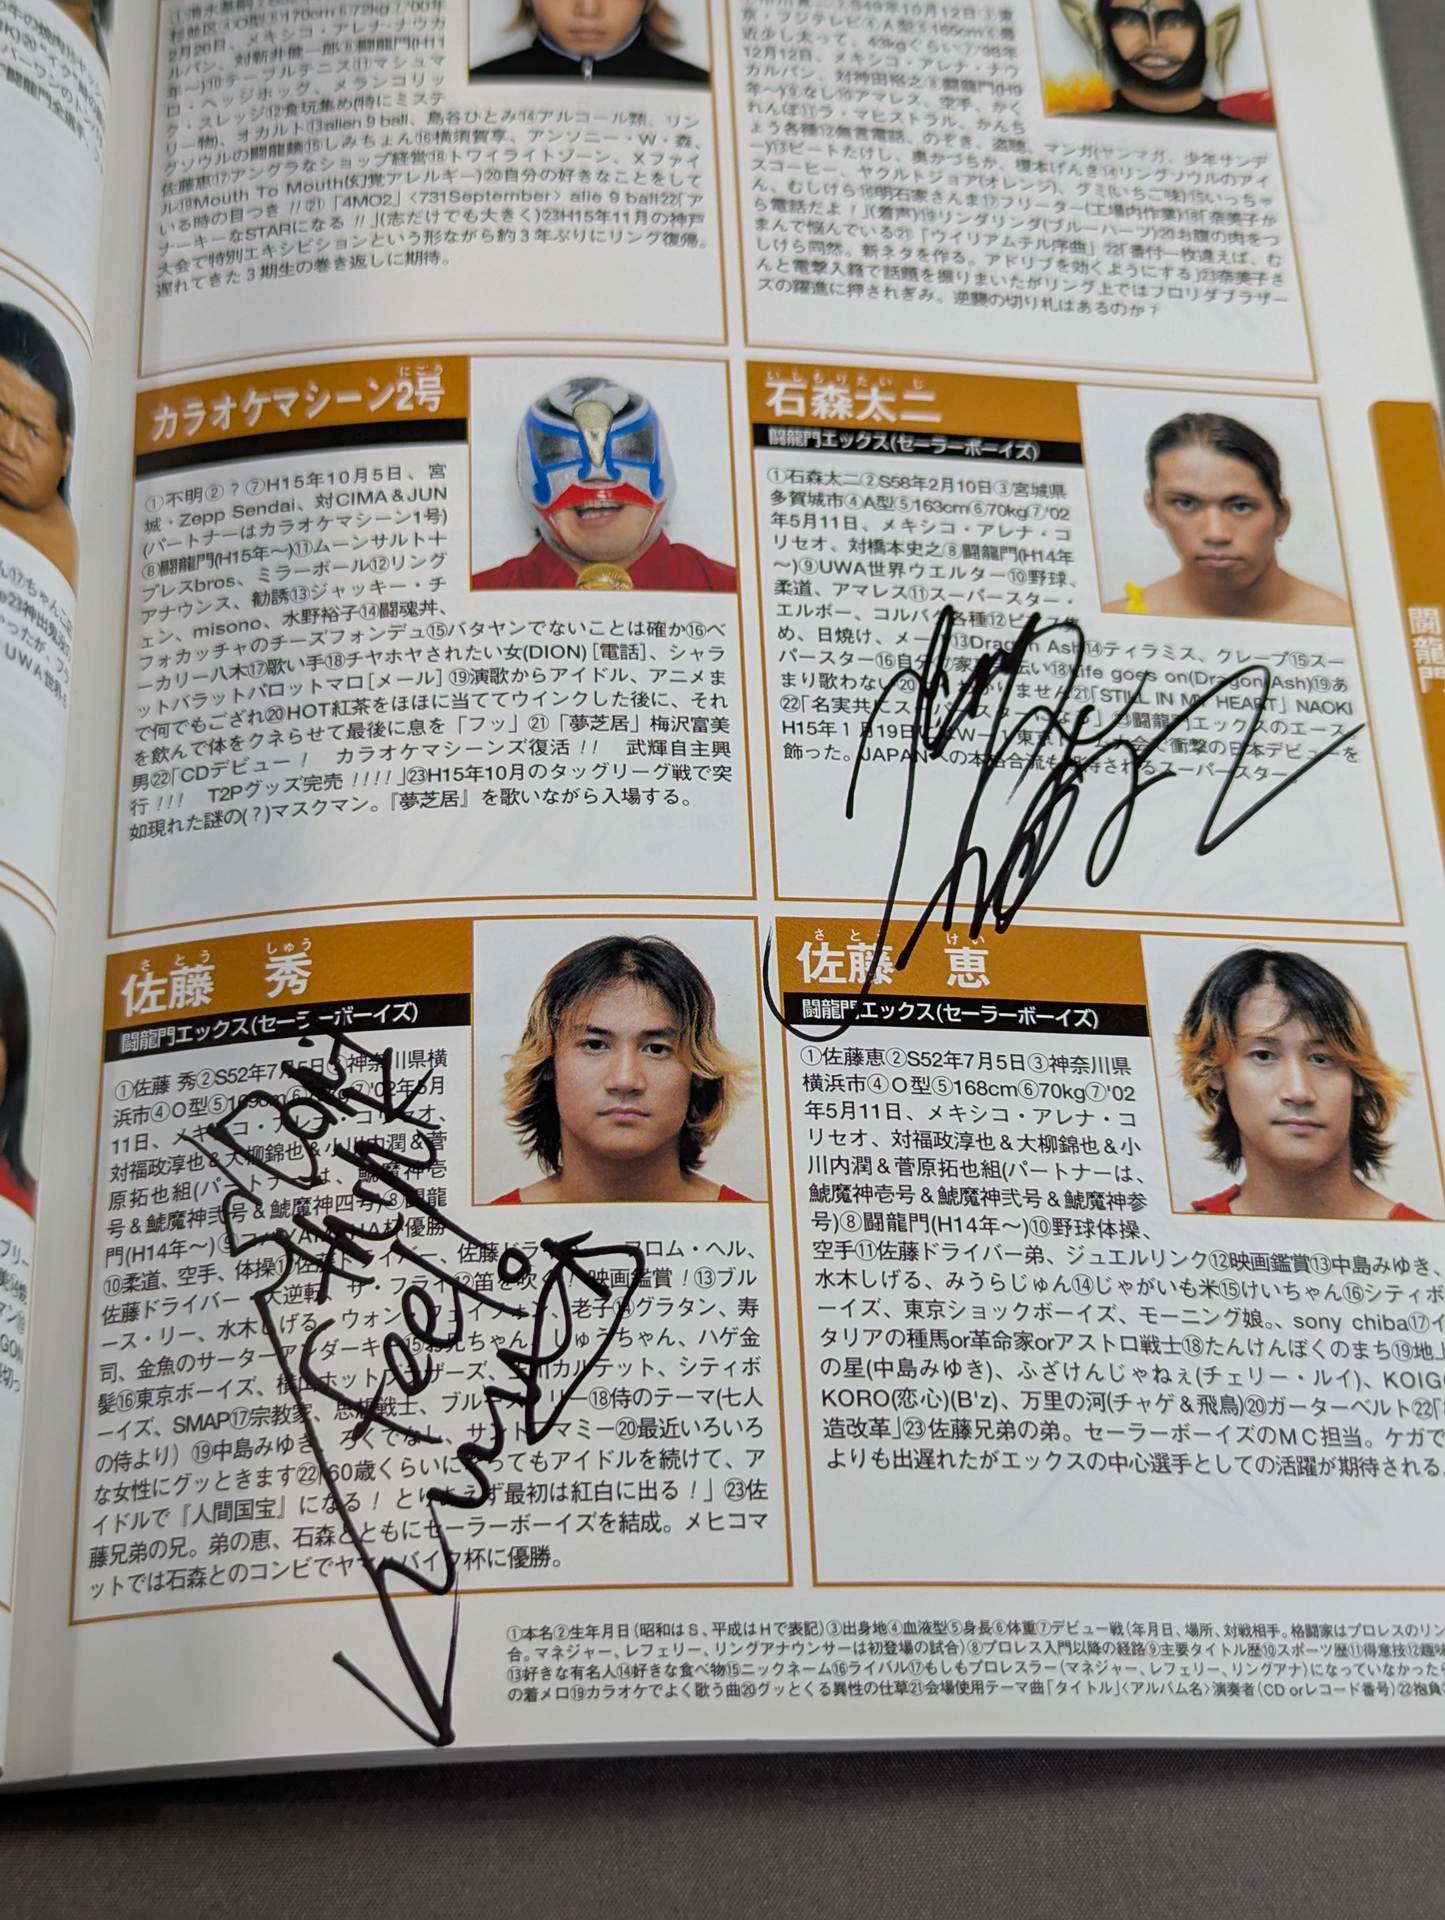 ルバン、対新井健一郎⑧闘龍門(H11
年~)⑩テーブルテニス⑪マシュマ
ロ・ヘッジホッグ、メランコリッ
ク・スレッジ⑫食玩集め(特にミステ
リー物)、オカルト⑬alien 9 ball、島谷ひとみ⑭アルコール類、リン
グソウルの闘龍麺⑮しみちょん⑯横須賀享、アンソニー・W・森、
佐藤恵⑰アングラなショップ経営⑱トワイライトゾーン、Xファイ
ル⑲Mouth To Mouth(幻覚アレルギー)⑳自分の好きなことをして
いる時の目つき!!㉑「4MO2」〈731September〉alie 9 ball㉒「ア
ナーキーなSTARになる!!」(志だけでも大きく)㉓H15年11月の神戸
大会で特別エキシビションという形ながら約3年ぶりにリング復帰。
遅れてきた3期生の巻き返しに期待。
近少し太って、43kgぐらい⑦'98年
12月12日、メキシコ・アレナ・ナウ
カルパン、対神田裕之⑧闘龍門(H9
年~)⑨なし⑩アマレス、空手、かく
れんぼ⑪ラ・マヒストラル、かんち
ょう各種⑫無言電話、のぞき、盗聴、マンガ(ヤンマガ、少年サンデ
ー)⑬ビートたけし、奥かづちか、榎本げんき⑭リングソウルのアイ
スコーヒー、ヤクルトジョア(オレンジ)、グミ(いちご味)⑮いっちゃ
ん、むしけら⑯明石家さんま⑰フリーター(工場内作業)⑱「奈美子か
ら電話だよ!」(着声)⑲リンダリンダ(ブルーハーツ)⑳お腹の肉をつ
まんで悩んでいる㉑「ウイリアムテル序曲」㉒「番付一枚違えば、む
しけら同然。新ネタを作る。アドリブを効くようにする」㉓奈美子さ
んと電撃入籍で話題を振りまいたがリング上ではフロリダブラザー
ズの躍進に押されぎみ。逆襲の切り札はあるのか?
にごう
カラオケマシーン2号
①不明②?⑦H15年10月5日、宮
城・Zepp Sendai、対CIMA&JUN
(パートナーはカラオケマシーン1号)
⑧闘龍門(H15年~)⑪ムーンサルト+
プレスbros、ミラーボール⑫リング
アナウンス、勧誘⑬ジャッキー・チ
ェン、misono、水野裕子⑭闘魂丼、
フォカッチャのチーズフォンデュ⑮バタヤンでないことは確か⑯ベ
ーカリー八木⑰歌い手⑱チヤホヤされたい女(DION)[電話]、シャラ
ットバラットパロットマロ[メール]⑲演歌からアイドル、アニメま
で何でもござれ⑳HOT紅茶をほほに当ててウインクした後に、それ
を飲んで体をクネらせて最後に息を「フッ」㉑「夢芝居」梅沢富美
男㉒「CDデビュー! カラオケマシーンズ復活!! 武輝自主興
行!!! T2Pグッズ完売!!!!」㉓H15年10月のタッグリーグ戦で突
如現れた謎の(?)マスクマン。『夢芝居』を歌いながら入場する。
いしもりたいじ
石森太二
闘龍門エックス(セーラーボーイズ)
①石森太二②S58年2月10日③宮城県
多賀城市④A型⑤163cm⑥70kg⑦'02
年5月11日、メキシコ・アレナ・コ
リセオ、対橋本史之⑧闘龍門(H14年
~)⑨UWA世界ウエルター⑩野球、
柔道、アマレス⑪スーパースター・
エルボー、コルバタ各種⑫ピアス集
め、日焼け、メール⑬Dragon Ash⑭ティラミス、クレープ⑮スー
パースター⑯自分⑰家事手伝い⑱Life goes on(Dragon Ash)⑲あ
まり歌わない⑳ わかりません㉑「STILL IN MY HEART」NAOKI
㉒「名実共にスーパースターになる」㉓闘龍門エックスのエース。
H15年1月19日にはW-1東京ドーム大会で衝撃の日本デビューを
飾った。JAPANへの本格合流も期待されるスーパースター。
さとう しゅう
佐藤 秀
闘龍門エックス(セーラーボーイズ)
①佐藤 秀②S52年7月5日③神奈川県横
浜市④O型⑤169cm⑥ kg⑦'02年5月
11日、メキシコ・アレナ・コリセオ、
対福政淳也&大柳錦也&小川内潤&菅
原拓也組(パートナーは、鯱魔神壱
号&鯱魔神弐号&鯱魔神四号)⑧闘龍
門(H14年~)⑨ヤマハ 杯優勝
⑩柔道、空手、体操⑪佐藤ドライバー、佐藤ドラ フロム・ヘル、
佐藤ドライバー 大逆転、ザ・フライ⑫笛を吹く!映画鑑賞!⑬ブル
ース・リー、水木しげる、ウォン・フェイフォン、老子⑭グラタン、寿
司、金魚のサーターアンダーキー⑮お兄ちゃん、しゅうちゃん、ハゲ金
髪⑯東京ボーイズ、横山ホットブラザーズ、玉川カルテット、シティボ
ーイズ、SMAP⑰宗教家、思想戦士、ブルース・リー⑱侍のテーマ(七人
の侍より)⑲中島みゆき、ろくでなし、サントワマミー⑳最近いろいろ
な女性にグッときます㉒「60歳くらいになってもアイドルを続けて、ア
イドルで『人間国宝』になる!とりあえず最初は紅白に出る!」㉓佐
藤兄弟の兄。弟の恵、石森とともにセーラーボーイズを結成。メヒコマ
ットでは石森とのコンビでヤマハバイク杯に優勝。
さとう けい
佐藤 恵
闘龍門エックス(セーラーボーイズ)
①佐藤恵②S52年7月5日③神奈川県
横浜市④O型⑤168cm⑥70kg⑦'02
年5月11日、メキシコ・アレナ・コ
リセオ、対福政淳也&大柳錦也&小
川内潤&菅原拓也組(パートナーは、
鯱魔神壱号&鯱魔神弐号&鯱魔神参
号)⑧闘龍門(H14年~)⑩野球体操、
空手⑪佐藤ドライバー弟、ジュエルリンク⑫映画鑑賞⑬中島みゆき、
水木しげる、みうらじゅん⑭じゃがいも米⑮けいちゃん⑯シティボ
ーイズ、東京ショックボーイズ、モーニング娘。、sony chiba⑰イ
タリアの種馬or革命家orアストロ戦士⑱たんけんぼくのまち⑲地上
の星(中島みゆき)、ふざけんじゃねぇ(チェリー・ルイ)、KOIG
KORO(恋心)(B'z)、万里の河(チャゲ&飛鳥)⑳ガーターベルト㉒「
造改革」㉓佐藤兄弟の弟。セーラーボーイズのMC担当。ケガで
よりも出遅れたがエックスの中心選手としての活躍が期待される。
Don't
think
feel
闘龍門
①本名②生年月日(昭和はS、平成はHで表記)③出身地④血液型⑤身長⑥体重⑦デビュー戦(年月日、場所、対戦相手。格闘家はプロレスのリン
合。マネジャー、レフェリー、リングアナウンサーは初登場の試合)⑧プロレス入門以降の経路⑨主要タイトル歴⑩スポーツ歴⑪得意技⑫趣味
⑬好きな有名人⑭好きな食べ物⑮ニックネーム⑯ライバル⑰もしもプロレスラー(マネジャー、レフェリー、リングアナ)になっていなかったら
の着メロ⑲カラオケでよく歌う曲⑳グッとくる異性の仕草㉑会場使用テーマ曲「タイトル」〈アルバム名〉演奏者(CD orレコード番号)㉒抱負